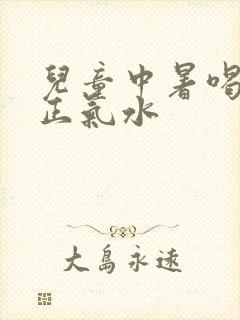 兒童中暑喝
正氣水
大島永遠